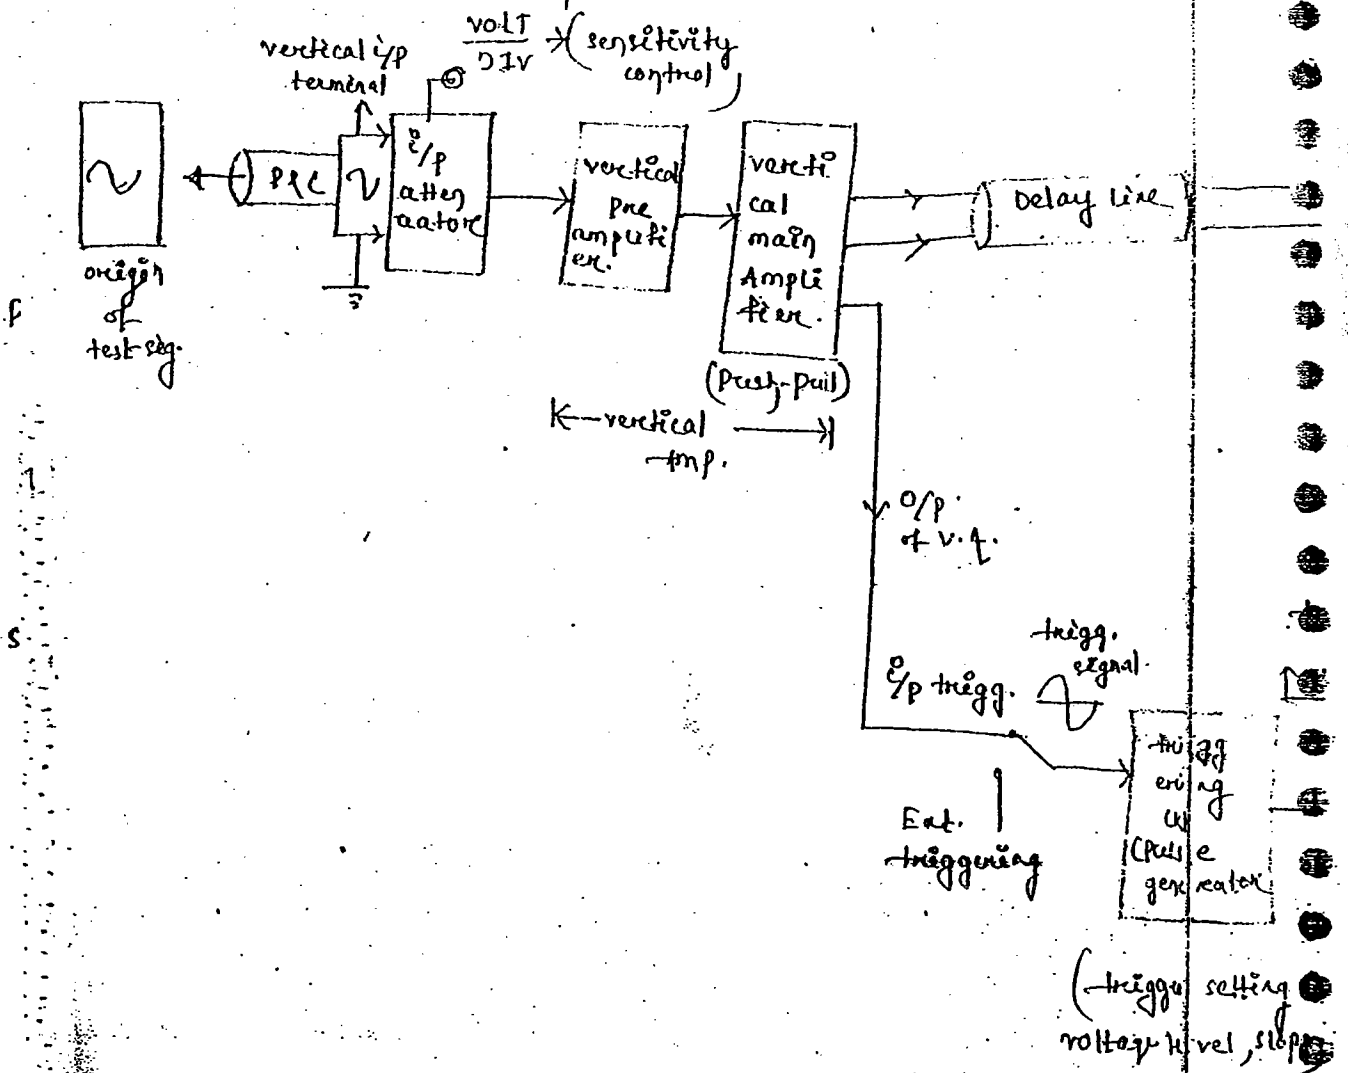 VOLT
DIV
(sensitivity
control)
vertical i/p
terminal
i/p
atten
uator
vertical
pre
amplifi
er.
verti
cal
main
Ampli
fier.
Delay line
origin
of
test sig.
(Push-pull)
vertical
Amp.
O/p
of V.A.
trigg.
signal.
i/p trigg.
Ext.
triggering
trigg
ering
(Pulse
generator
(trigger setting
voltage level, slope